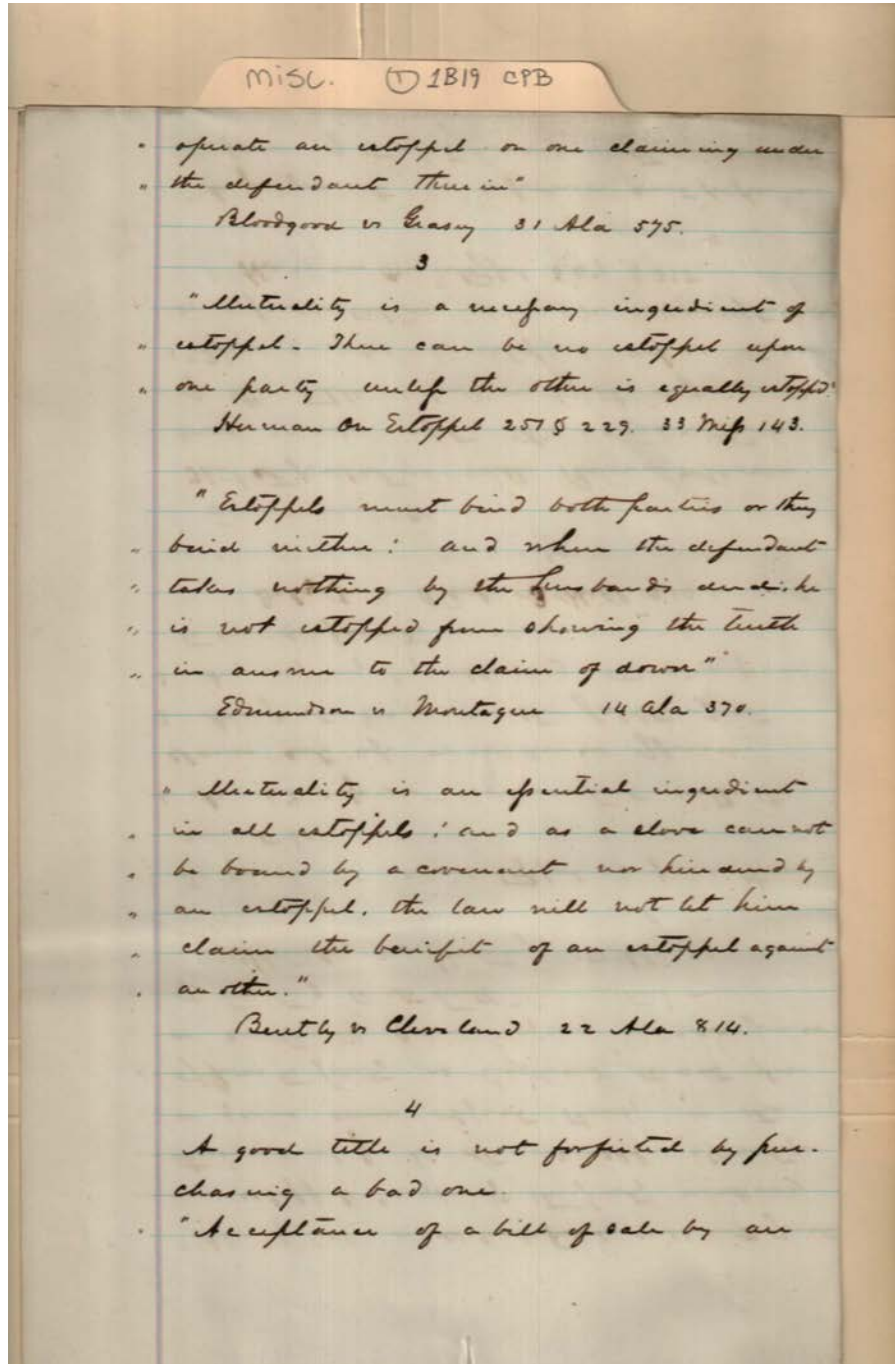 misc. ① 1B19 CPB
" operate an estoppel on one claiming under
" the defendant therein"
Bloodgood vs Grasey 31 Ala 575.
3
"Mutuality is a necessary ingredient of
" estoppel. There can be no estoppel upon
" one party unless the other is equally estopped"
Herman On Estoppel 251 § 229. 33 Miss 143.
" Estoppels must bind both parties or they
" bind neither: and when the defendant
" takes nothing by the husbands deed, he
" is not estopped from showing the truth
" in answer to the claim of dower"
Edmundson vs Montague 14 Ala 370.
" Mutuality is an essential ingredient
" in all estoppels; and as a slave cannot
" be bound by a covenant nor hindered by
" an estoppel, the law will not let him
" claim the benifit of an estoppel against
" another."
Bently vs Cleveland 22 Ala 814.
4
A good title is not forfieted by pur-
chasing a bad one.
" "Acceptance of a bill of sale by an